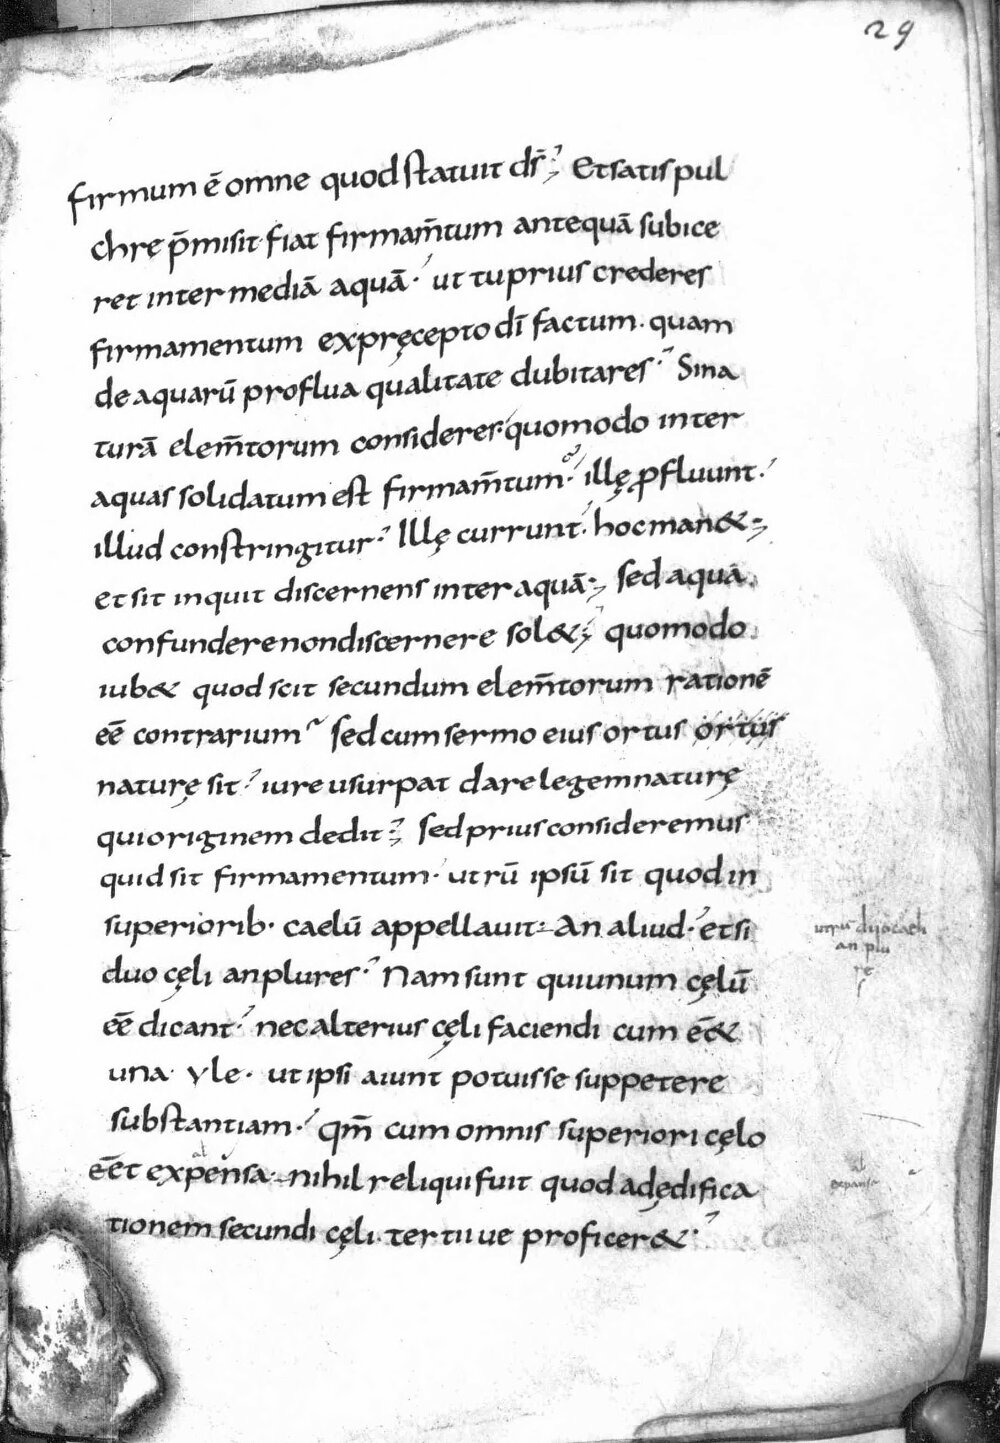 29
firmum ē omne quod statuit ds̄ Et satis pul
chrę p̄misit fiat firmam̄tum antequā subice
ret inter mediā aquā · ut tu prius crederes
firmamentum ex pręcepto dī factum · quam
de aquarū proflua qualitate dubitares · Si na
turā elem̄torum consideres · quomodo inter
aquas solidatum est firmam̄tum · illę ꝓfluunt ·
illud constringitur · Illę currunt · hoc man& ·
et sit inquit discernens inter aquā · sed aquā
confundere non discernere sol& · quomodo
iub& quod scit secundum elem̄torum rationē
eē contrarium · sed cum sermo eius ortus ortus
naturę sit · iure usurpat dare legem naturę
qui originem dedit · sed prius consideremus
quid sit firmamentum · utrū ipsū sit quod in
superiorib· caelū appellavit · An aliud · et si
duo cęli an plures · Nam sunt qui unum cęlū
eē dicant · nec alterius cęli faciendi cum eē&
una yle · ut ipsi aiunt potuisse suppetere
substantiam · qm̄ cum omnis superiori cęlo
eēt expensa · nihil reliqui fuit quod ad ędifica
tionem secundi cęli · tertii ve proficer& ·
utrū duo caeli
an plu
re
ς
al
expansa